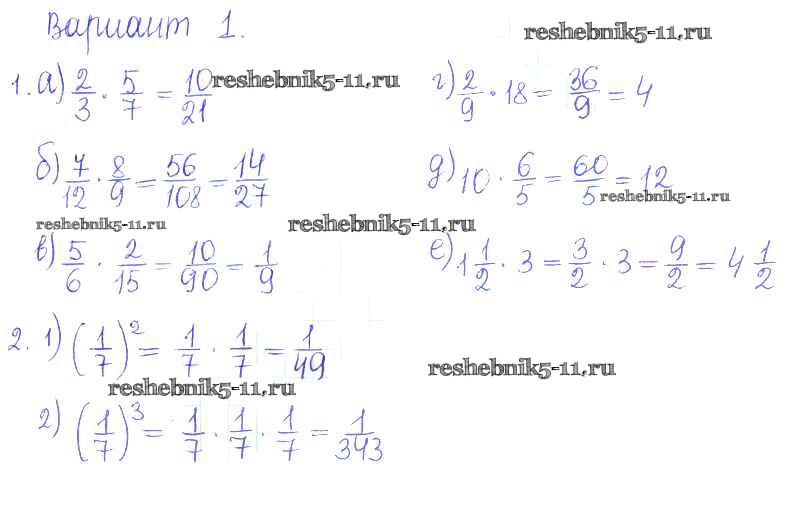 Вариант 1.
reshebnik5-11.ru
1. а) 2/3 · 5/7 = 10/21
reshebnik5-11.ru
г) 2/9 · 18 = 36/9 = 4
б) 7/12 · 8/9 = 56/108 = 14/27
д) 10 · 6/5 = 60/5 = 12
reshebnik5-11.ru
reshebnik5-11.ru
reshebnik5-11.ru
в) 5/6 · 2/15 = 10/90 = 1/9
е) 1 1/2 · 3 = 3/2 · 3 = 9/2 = 4 1/2
2. 1) (1/7)² = 1/7 · 1/7 = 1/49
reshebnik5-11.ru
reshebnik5-11.ru
2) (1/7)³ = 1/7 · 1/7 · 1/7 = 1/343